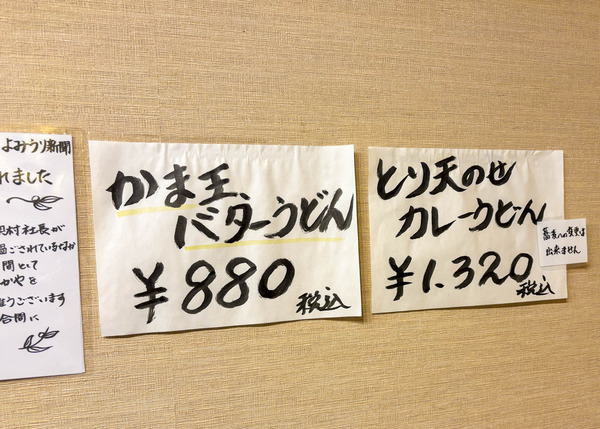 よみうり新聞
れました
村社長が
過ごされているなか
間として
かやを
うございます
合間に
かま玉、
バターうどん
¥880
税込
とり天のせ
カレーうどん
¥1.320
税込
蕎麦への変更は
出来ません